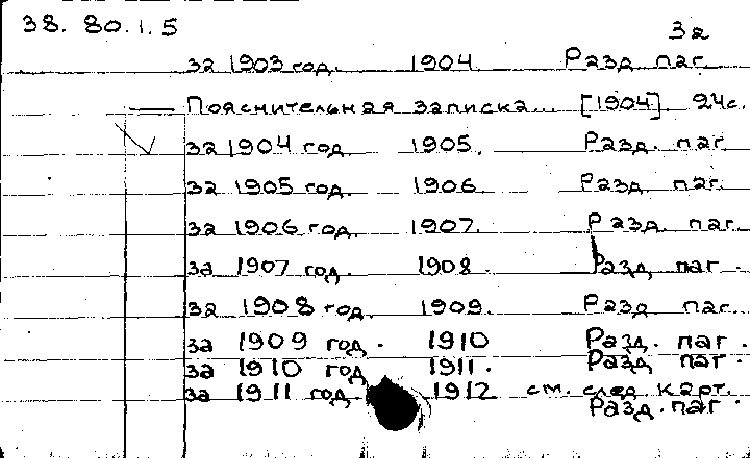 38. 80.1.5 3а
за 1903 год. 1904 Разд. паг.
— Пояснительная записка... [1904]. 94с.
за 1904 год 1905. Разд. паг.
за 1905 год. 1906. Разд. паг.
за 1906 год. 1907. Разд. паг.
за 1907 год. 1908. Разд. паг.
за 1908 год. 1909. Разд. паг.
за 1909 год. 1910 Разд. паг.
за 1910 год 1911. Разд. паг.
за 1911 год. 1912 см. след. карт.
Разд. паг.